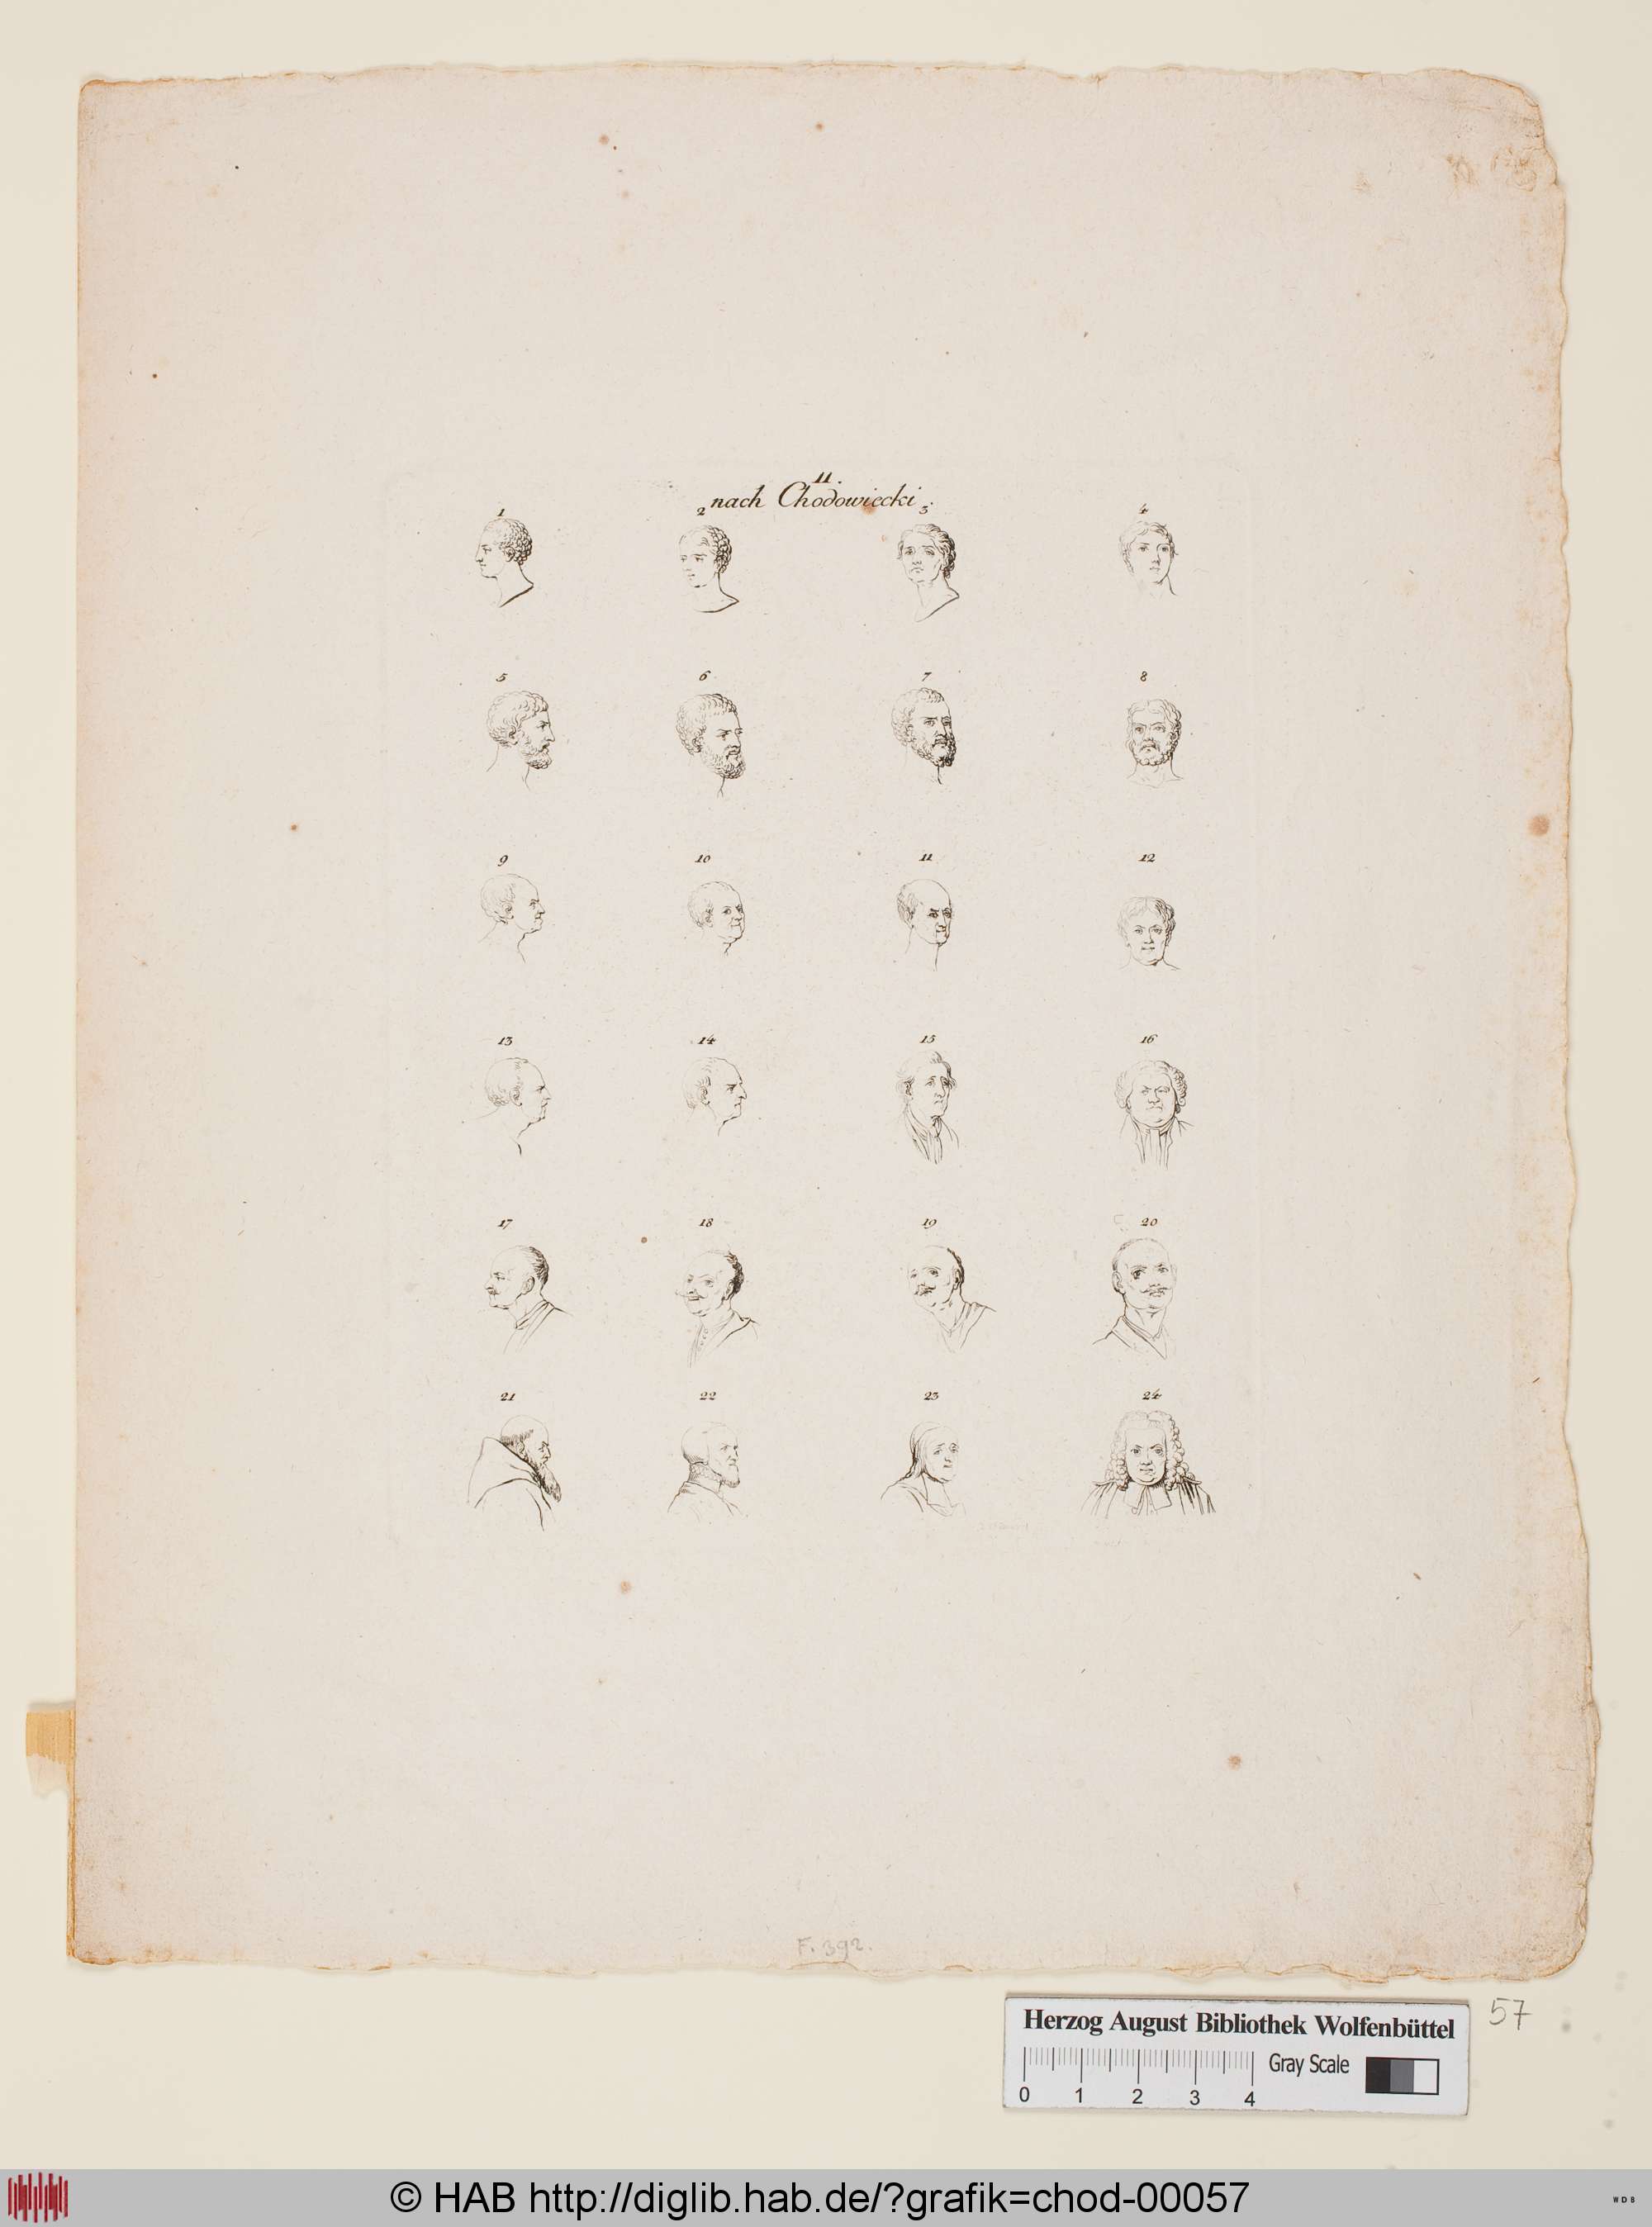 11.
nach Chodowiecki.
1 2 3 4
5 6 7 8
9 10 11 12
13 14 15 16
17 18 19 20
21 22 23 24
F. 392.
Herzog August Bibliothek Wolfenbüttel
57
Gray Scale
0 1 2 3 4
© HAB http://diglib.hab.de/?grafik=chod-00057
WDB